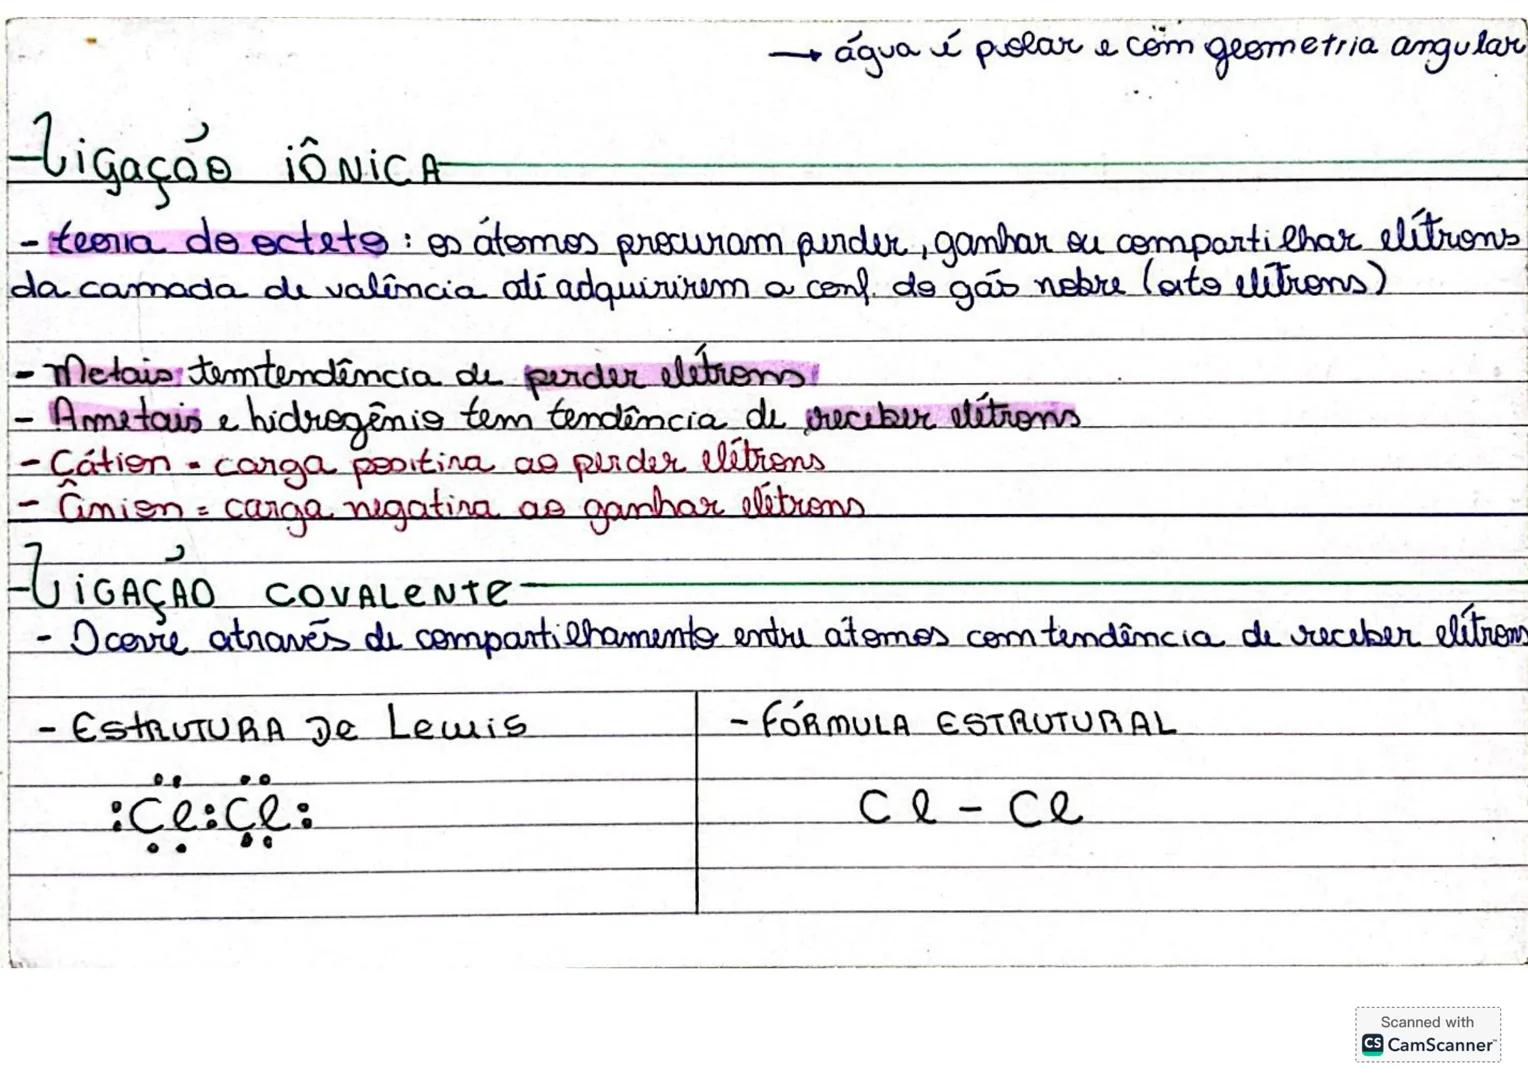 → água é polar e com geometria angular
Ligação iÔNiCA
- teoria do octeto : os átomos procuram perder, ganhar ou compartilhar elétrons
da camada de valência até adquirirem a conf. do gás nobre (oito elétrons)
- Metais tem tendência de perder elétrons
- Ametais e hidrogênio tem tendência de receber elétrons
- Cátion = carga positiva ao perder elétrons
- Ânion = carga negativa ao ganhar elétrons
LiGAÇÃO COVALENTE
- Ocorre através de compartilhamento entre átomos com tendência de receber elétrons
- ESTRUTURA De Lewis
- FÓRMULA ESTRUTURAL
:Cl:Cl:
Cl - Cl
Scanned with
CS CamScanner